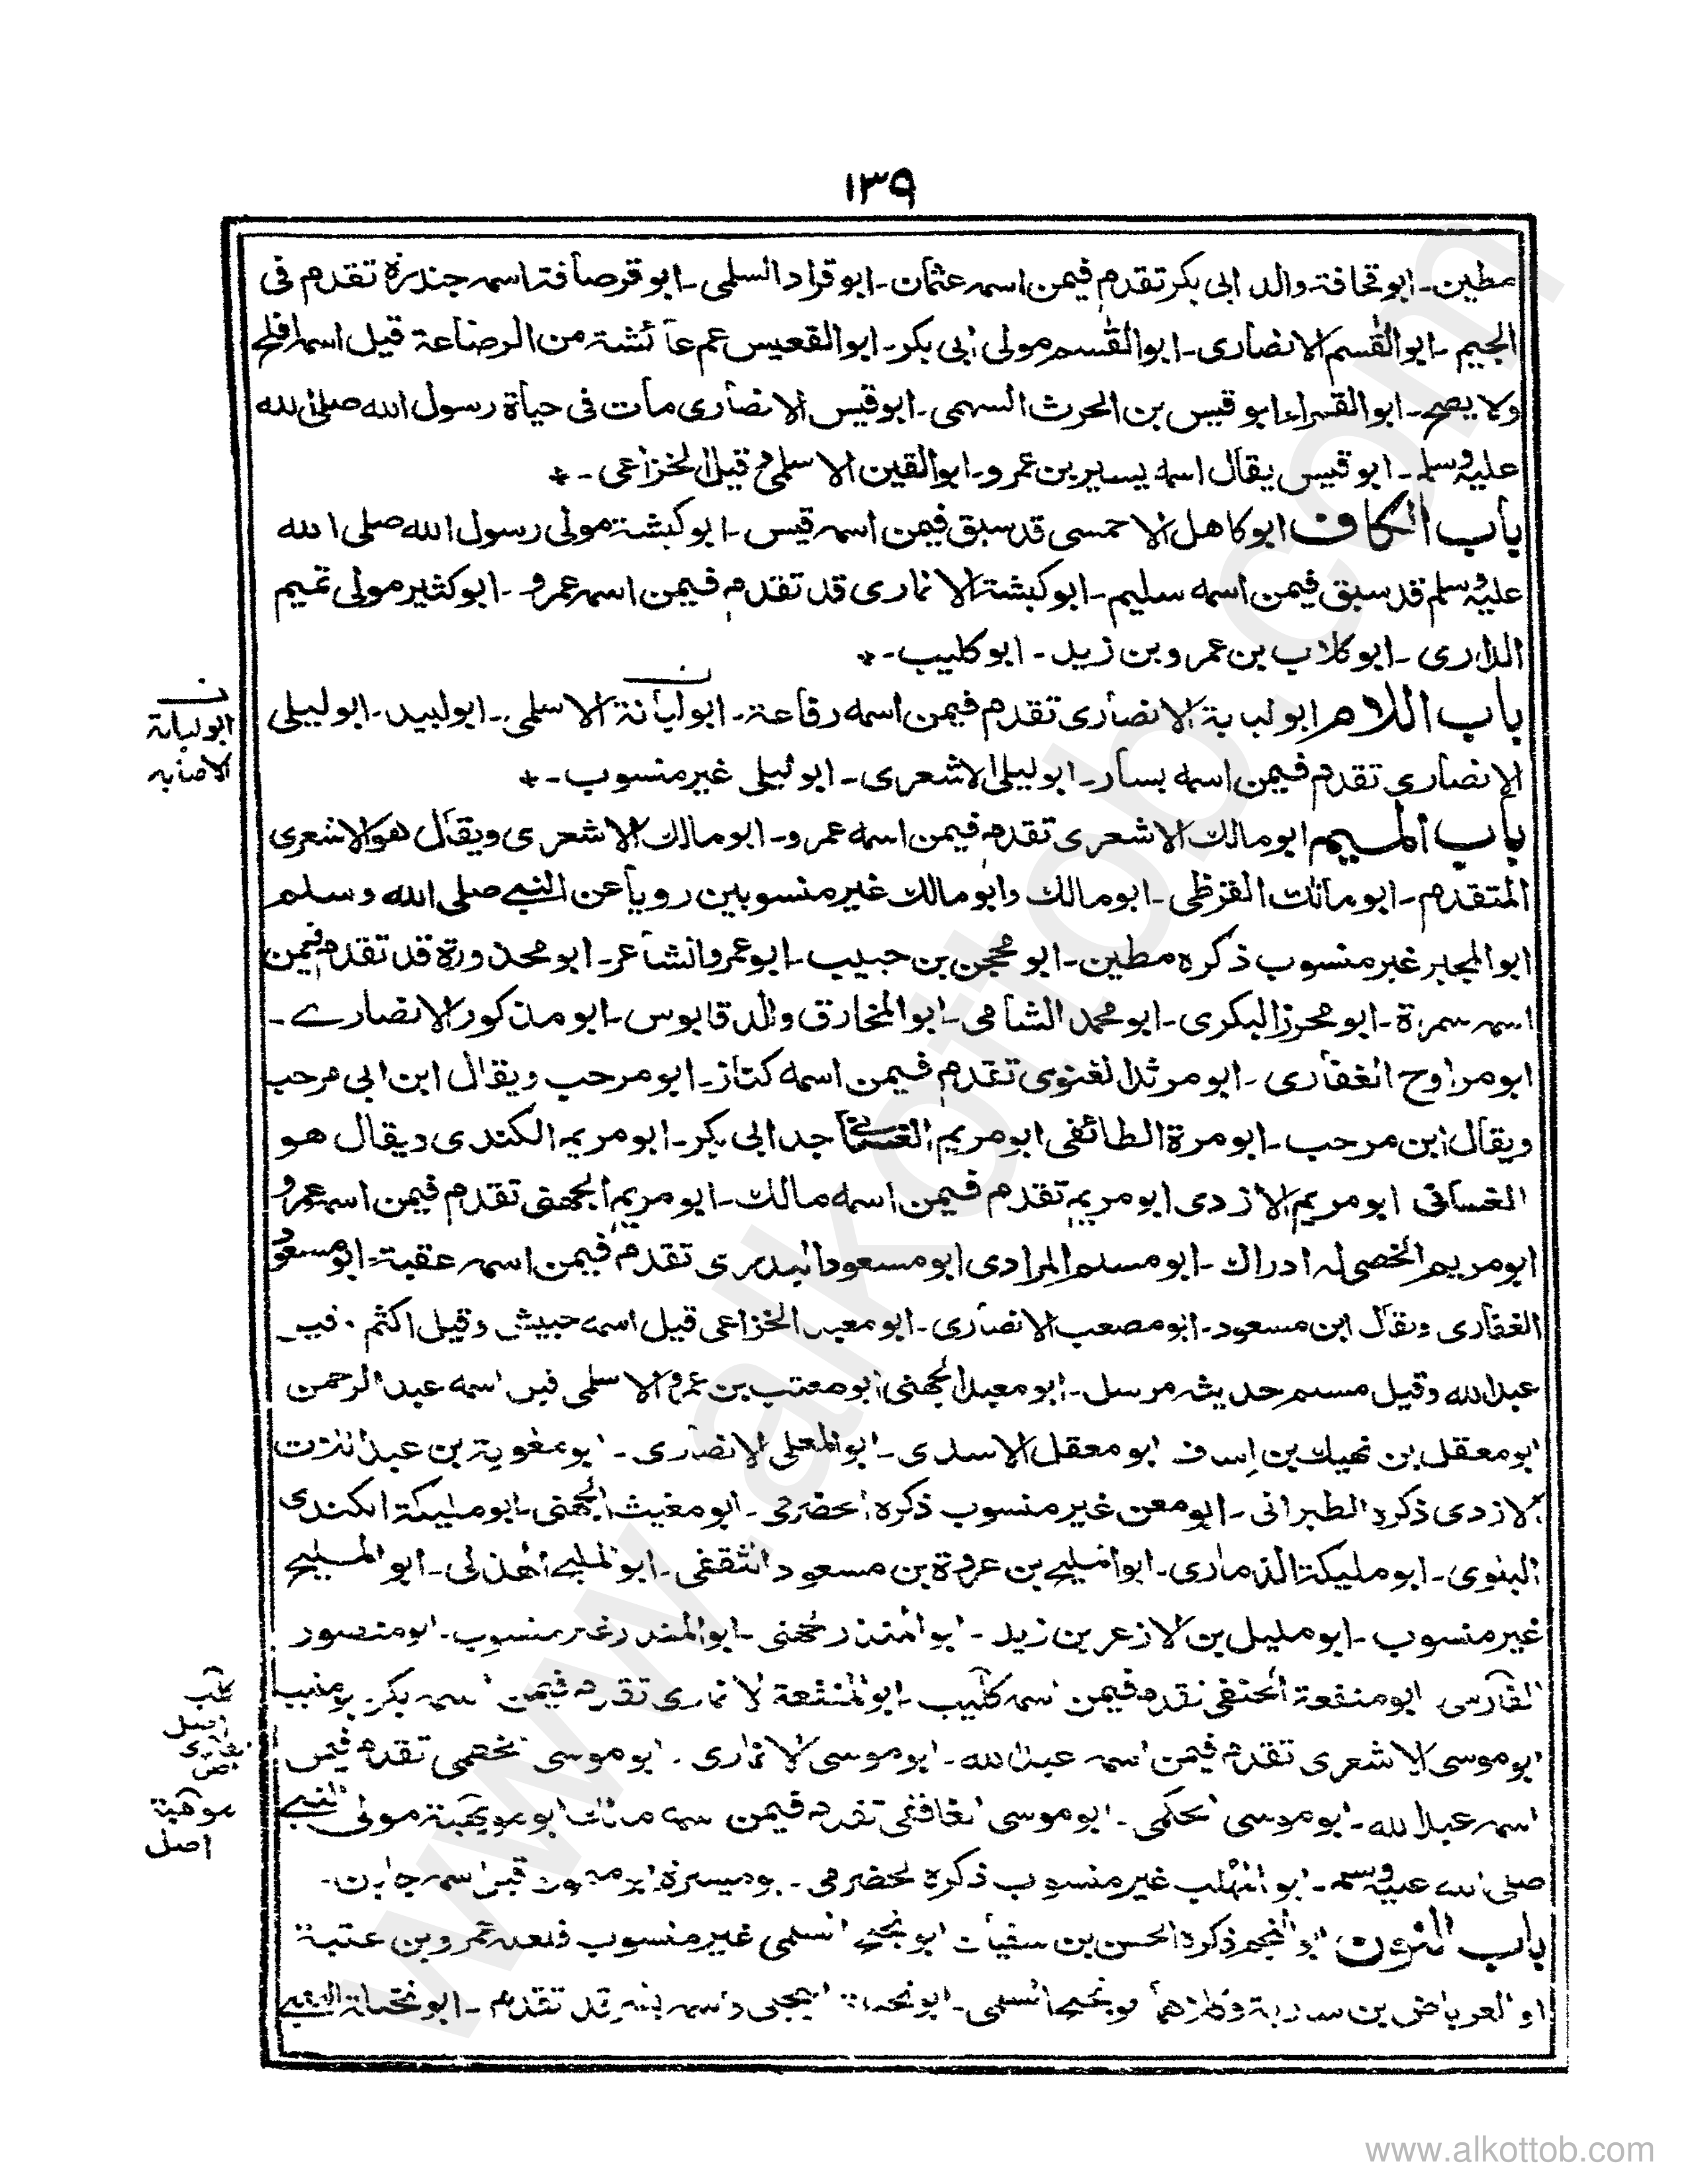 ١٣٩
مطين۔ ابو قحافة والد ابی بکر تقدم فیمن اسمہ عثمان۔ ابو قراد السلمی۔ ابو قرصافة اسمہ جندرة تقدم فی
الجیم۔ ابو القسم الانصاری۔ ابو القسم مولی ابی بکر۔ ابو القعیس عم عائشة من الرضاعة قیل اسمہ افلح
ولا یصح۔ ابو القسراء ابو قیس بن الحرث السهمی۔ ابو قیس الانصاری مات فی حیاة رسول الله صلی الله
علیہ وسلم۔ ابو قیس یقال اسمہ یسیر بن عمرو۔ ابو القین الاسلمی وقیل الخزاعی۔
باب الکاف ابو کاهل الاحمسی قد سبق فیمن اسمہ قیس۔ ابو کبشة مولی رسول الله صلی الله
علیہ وسلم قد سبق فیمن اسمه سلیم۔ ابو کبشة الانماری قد تقدم فیمن اسمہ عمرو۔ ابو کثیر مولی تمیم
الداری۔ ابو کلاب بن عمرو بن زید۔ ابو کلیب۔
باب اللام ابو لبابة الانصاری تقدم فیمن اسمه رفاعة۔ ابو لبانة الاسلمی۔ ابو لبید۔ ابو لیلی
الانصاری تقدم فیمن اسمه یسار۔ ابو لیلی الاشعری۔ ابو لیلی غیر منسوب۔
باب المیم ابو مالك الاشعری تقدم فیمن اسمه عمرو۔ ابو مالك الاشعری ویقال هو الاشعری
المتقدم۔ ابو مالك القرظی۔ ابو مالك وابو مالك غیر منسوبین رویا عن النبی صلی الله وسلم
ابو المجبر غیر منسوب ذکره مطین۔ ابو محجن بن حبیب۔ ابو عمرو الشاعر۔ ابو محذورة قد تقدم فیمن
اسمہ سمرة۔ ابو محرز البکری۔ ابو محمد الشامی۔ ابو المخارق والد قابوس۔ ابو مذکور الانصاری۔
ابو مراوح الغفاری۔ ابو مرثد الغنوی تقدم فیمن اسمه کناز۔ ابو مرحب ویقال ابن ابی مرحب
ویقال ابن مرحب۔ ابو مرة الطائفی ابو مریم الغسانی جد ابی بکر۔ ابو مریم الکندی ویقال هو
الغسانی ابو مریم الازدی ابو مریم تقدم فیمن اسمه مالك۔ ابو مریم الجهنی تقدم فیمن اسمہ عمرو
ابو مریم الخصی لہ ادراك۔ ابو مسلم المرادی ابو مسعود البدری تقدم فیمن اسمہ عقبة۔ ابو مسعود
الغفاری ویقال ابن مسعود۔ ابو مصعب الانصاری۔ ابو معبد الخزاعی قیل اسمه حبیش وقیل اکثم۔ قیل
عبد الله وقیل مسلم حدیثہ مرسل۔ ابو معبد الجهنی ابو معتب بن عمرو الاسلمی قیل اسمه عبد الرحمن
ابو معقل بن نهیك بن اساف ابو معقل الاسدی۔ ابو المعلی الانصاری۔ ابو مغویة بن عبد اللات
الازدی ذکره الطبرانی۔ ابو معن غیر منسوب ذکره الحضرمی۔ ابو مغیث الجهنی۔ ابو ملیکة الکندی
البنوی۔ ابو ملیکة الذماری۔ ابو الملیح بن عروة بن مسعود الثقفی۔ ابو الملیح الهذلی۔ ابو الملیح
غیر منسوب۔ ابو ملیل بن الازعر بن زید۔ ابو المنذر الجهنی۔ ابو المنذر غیر منسوب۔ ابو منصور
الفارسی ابو منفعة الحنفی تقدم فیمن اسمہ کلیب۔ ابو المنفعة الانماری تقدم فیمن اسمہ بکر ابو منیب
ابو موسی الاشعری تقدم فیمن اسمہ عبد الله۔ ابو موسی الانماری۔ ابو موسی الخطمی تقدم فیمن
اسمہ عبد الله۔ ابو موسی الحکمی۔ ابو موسی الغافقی تقدم فیمن اسمه مالك ابو مویهبة مولی النبی
صلی الله علیہ وسلم۔ ابو المهلب غیر منسوب ذکره الحضرمی۔ ابو میسرة ابو میمون قیل اسمہ جابان۔
باب النون ابو النجم ذکره الحسن بن سفیان ابو نجیح السلمی غیر منسوب فلعلہ عمرو بن عتبة
او العرباض بن ساریة ابو نجیح السلمی۔ قد تقدم۔ ابو نخیلة
ابو لبانة
کلیب
اصل
موهبة
اصل
www.alkottob.com
www.alkottob.com